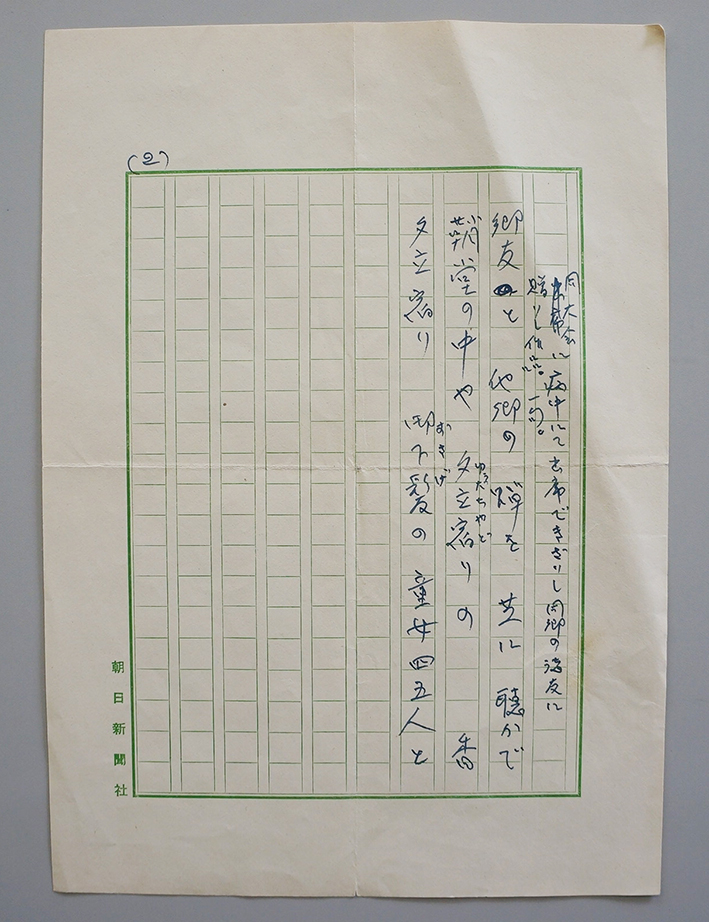 (2)
同大会に病中にて出席できざりし同郷の諸友に
贈りし作品。一句。
郷友と 他郷の 蟬を 芝に 聴かで
堂の中や 夕立宿りの 香
ゆふだちやど
夕立宿り 御下髪の 童女四五人と
おさげ
朝日新聞社